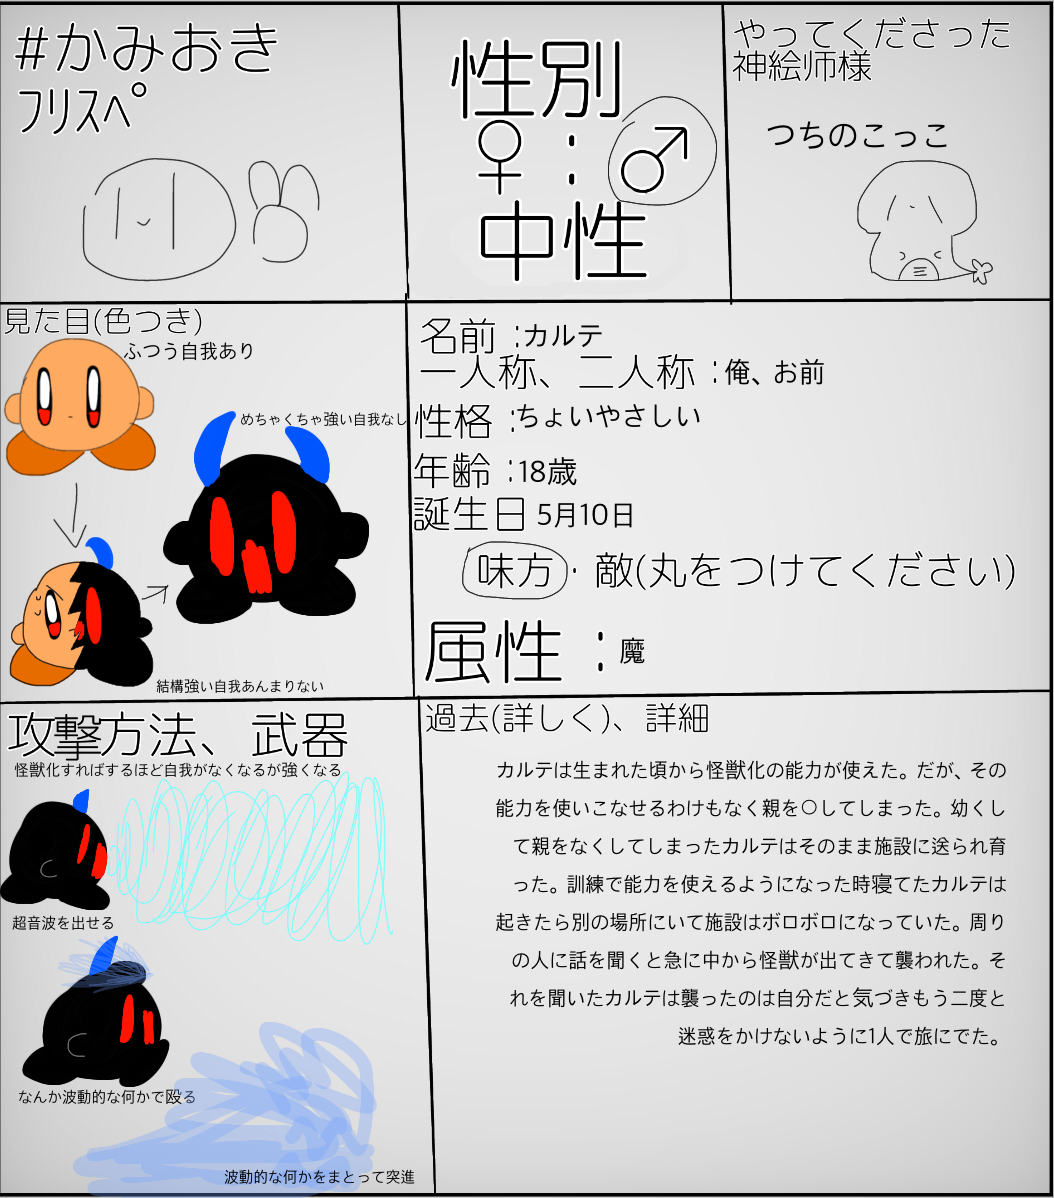 #かみおき
フリスペ
性別
♀:♂
中性
やってくださった
神絵师様
つちのこっこ
見た目(色つき)
ふつう自我あり
めちゃくちゃ強い自我なし
結構強い自我あんまりない
名前:カルテ
一人称、二人称:俺、お前
性格:ちょいやさしい
年齢:18歳
誕生日 5月10日
味方・敵(丸をつけてください)
属性:魔
攻撃方法、武器
怪獣化すればするほど自我がなくなるが強くなる
超音波を出せる
なんか波動的な何かで殴る
波動的な何かをまとって突進
過去(詳しく)、詳細
カルテは生まれた頃から怪獣化の能力が使えた。だが、その
能力を使いこなせるわけもなく親を〇してしまった。幼くし
て親をなくしてしまったカルテはそのまま施設に送られ育
った。訓練で能力を使えるようになった時寝てたカルテは
起きたら別の場所にいて施設はボロボロになっていた。周り
の人に話を聞くと急に中から怪獣が出てきて襲われた。そ
れを聞いたカルテは襲ったのは自分だと気づきもう二度と
迷惑をかけないように1人で旅にでた。